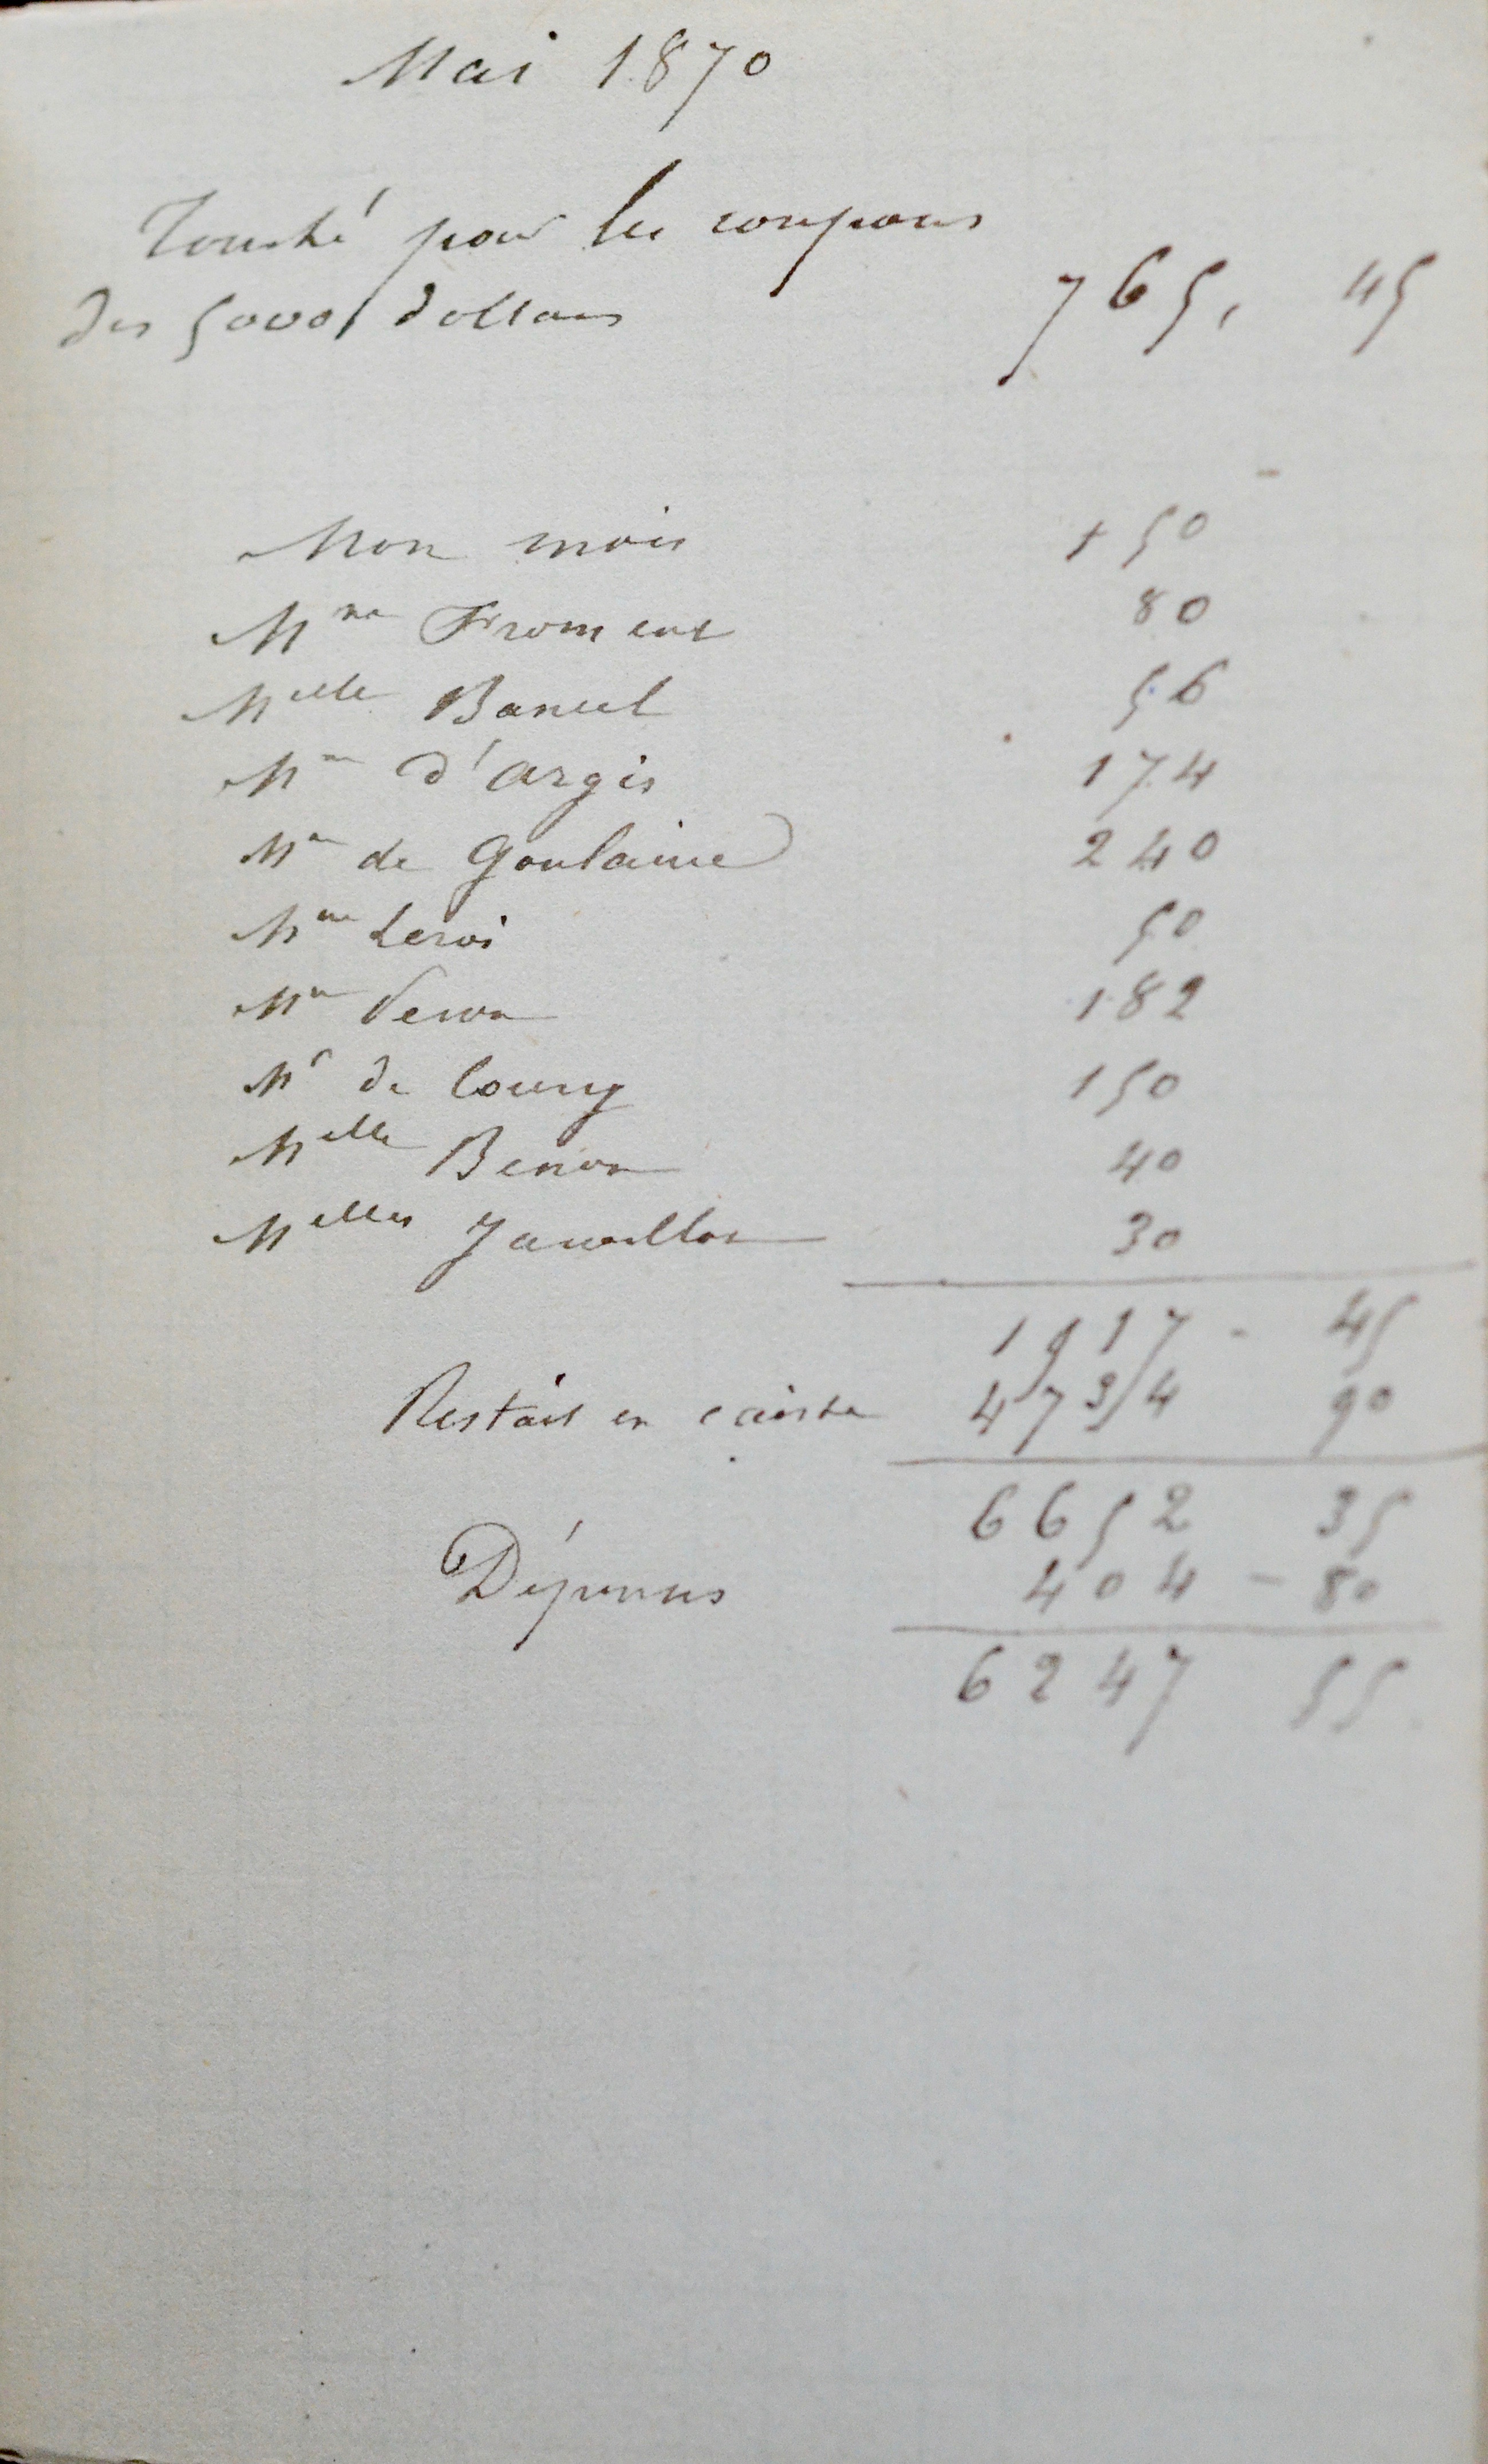 Mai 1870
Touché pour les coupons
des 5000 dollars 765, 45
Mon mois 150
Mme Froment 80
Melle Bancel 56
Mme d'argis 174
Me de Goulaine 240
Mme Leroi 50
Me Veron 182
Mr de Courcy 150
Melle Benon 40
Melles 30
1917 - 45
Restait en caisse 4734 90
6652 35
Dépenses 404 - 80
6247 55